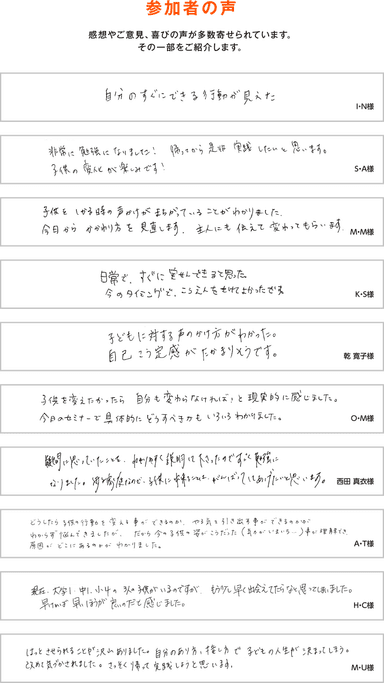 参加者の声
感想やご意見、喜びの声が多数寄せられています。
その一部をご紹介します。
自分のすぐにできる行動が見えた
I・N様
非常に勉強になりました! 帰ってから是非実践したいと思います。
子供の変化が楽しみです!
S・A様
子供をしかる時の声かけがまちがっていることがわかりました。
今日からかかわり方を見直します。主人にも伝えて変わってもらいます。
M・M様
日常で、すぐに実せんできると思った
今のタイミングで、こうえんをきけてよかったです
K・S様
子どもに対する声のかけ方がわかった。
自己こう定感がたかまりそうです。
乾 寛子様
子供を変えたかったら 自分も変わらなければ、と現実的に感じました。
今日のセミナーで具体的にどうすべきかもいろいろわかりました。
O・M様
疑問に思っていたことを、わかりやすく説明して下さったのですごく勉強に
なりました。
がんばってしあげたいと思います。
西田 真衣様
どうしたら子供の行動を変える事ができるのか、やる気を引き出す事ができるのかが
わからず悩んできましたが、だから今の子供の姿がこうだった
事が理解でき、
原因がどこにあるのかがわかりました。
A・T様
現在、大学1、中1、小4の3人の子供がいるのですが、もう少し早く出会えてたらなと思ってしまいました。
早ければ早いほうが良いのだと感じました。
H・C様
はっとさせられることが沢山ありました。自分のあり方、接し方で子どもの人生が決まってしまう。
改めて気づかされました。さっそく帰って実践しようと思います。
M・U様